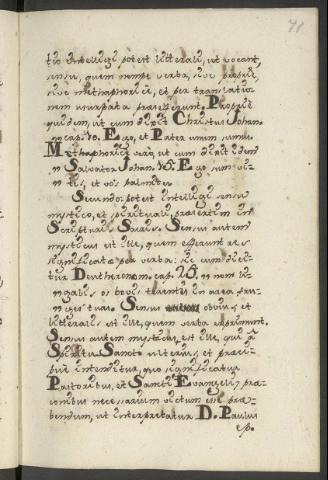 71
tio intelligi potest litterali, ut vocant,
sensu, quem nempe verba, sive propriè,
sive methaphoricè, et per translatio-
nem usurpata præseferunt. Propriè
quidem, ut cum dixit Christus Johan.
cap. 10. Ego, et Pater unum sumus
Methaphoricè verò, ut cum dixit idem
Salvator Johan. 15. Ego sum vi-
tis, et vos palmites
Secundo: potest intelligi sensu
mystico, et spirituali, præsertim in
Scripturis Sacris. Sensus autem
mysticus est ille, quem efferunt res
significatæ per verba: sic cum dici-
tur Deutheronom. cap. 25. non li-
gabis os bovis triturantis in area fru-
ges tuas. Sensus obvius, et
litteralis est ille, quem verba exprimunt.
Sensus autem mysticus, est ille, qui à
Spiritu Sancto ulterius, et præci-
puè intenditur, quo significatur
Pastoribus, et Sancti Evangelij præ-
conibus necessarium victum esse præ-
bendum, ut interpretatur D. Paulus
ep.